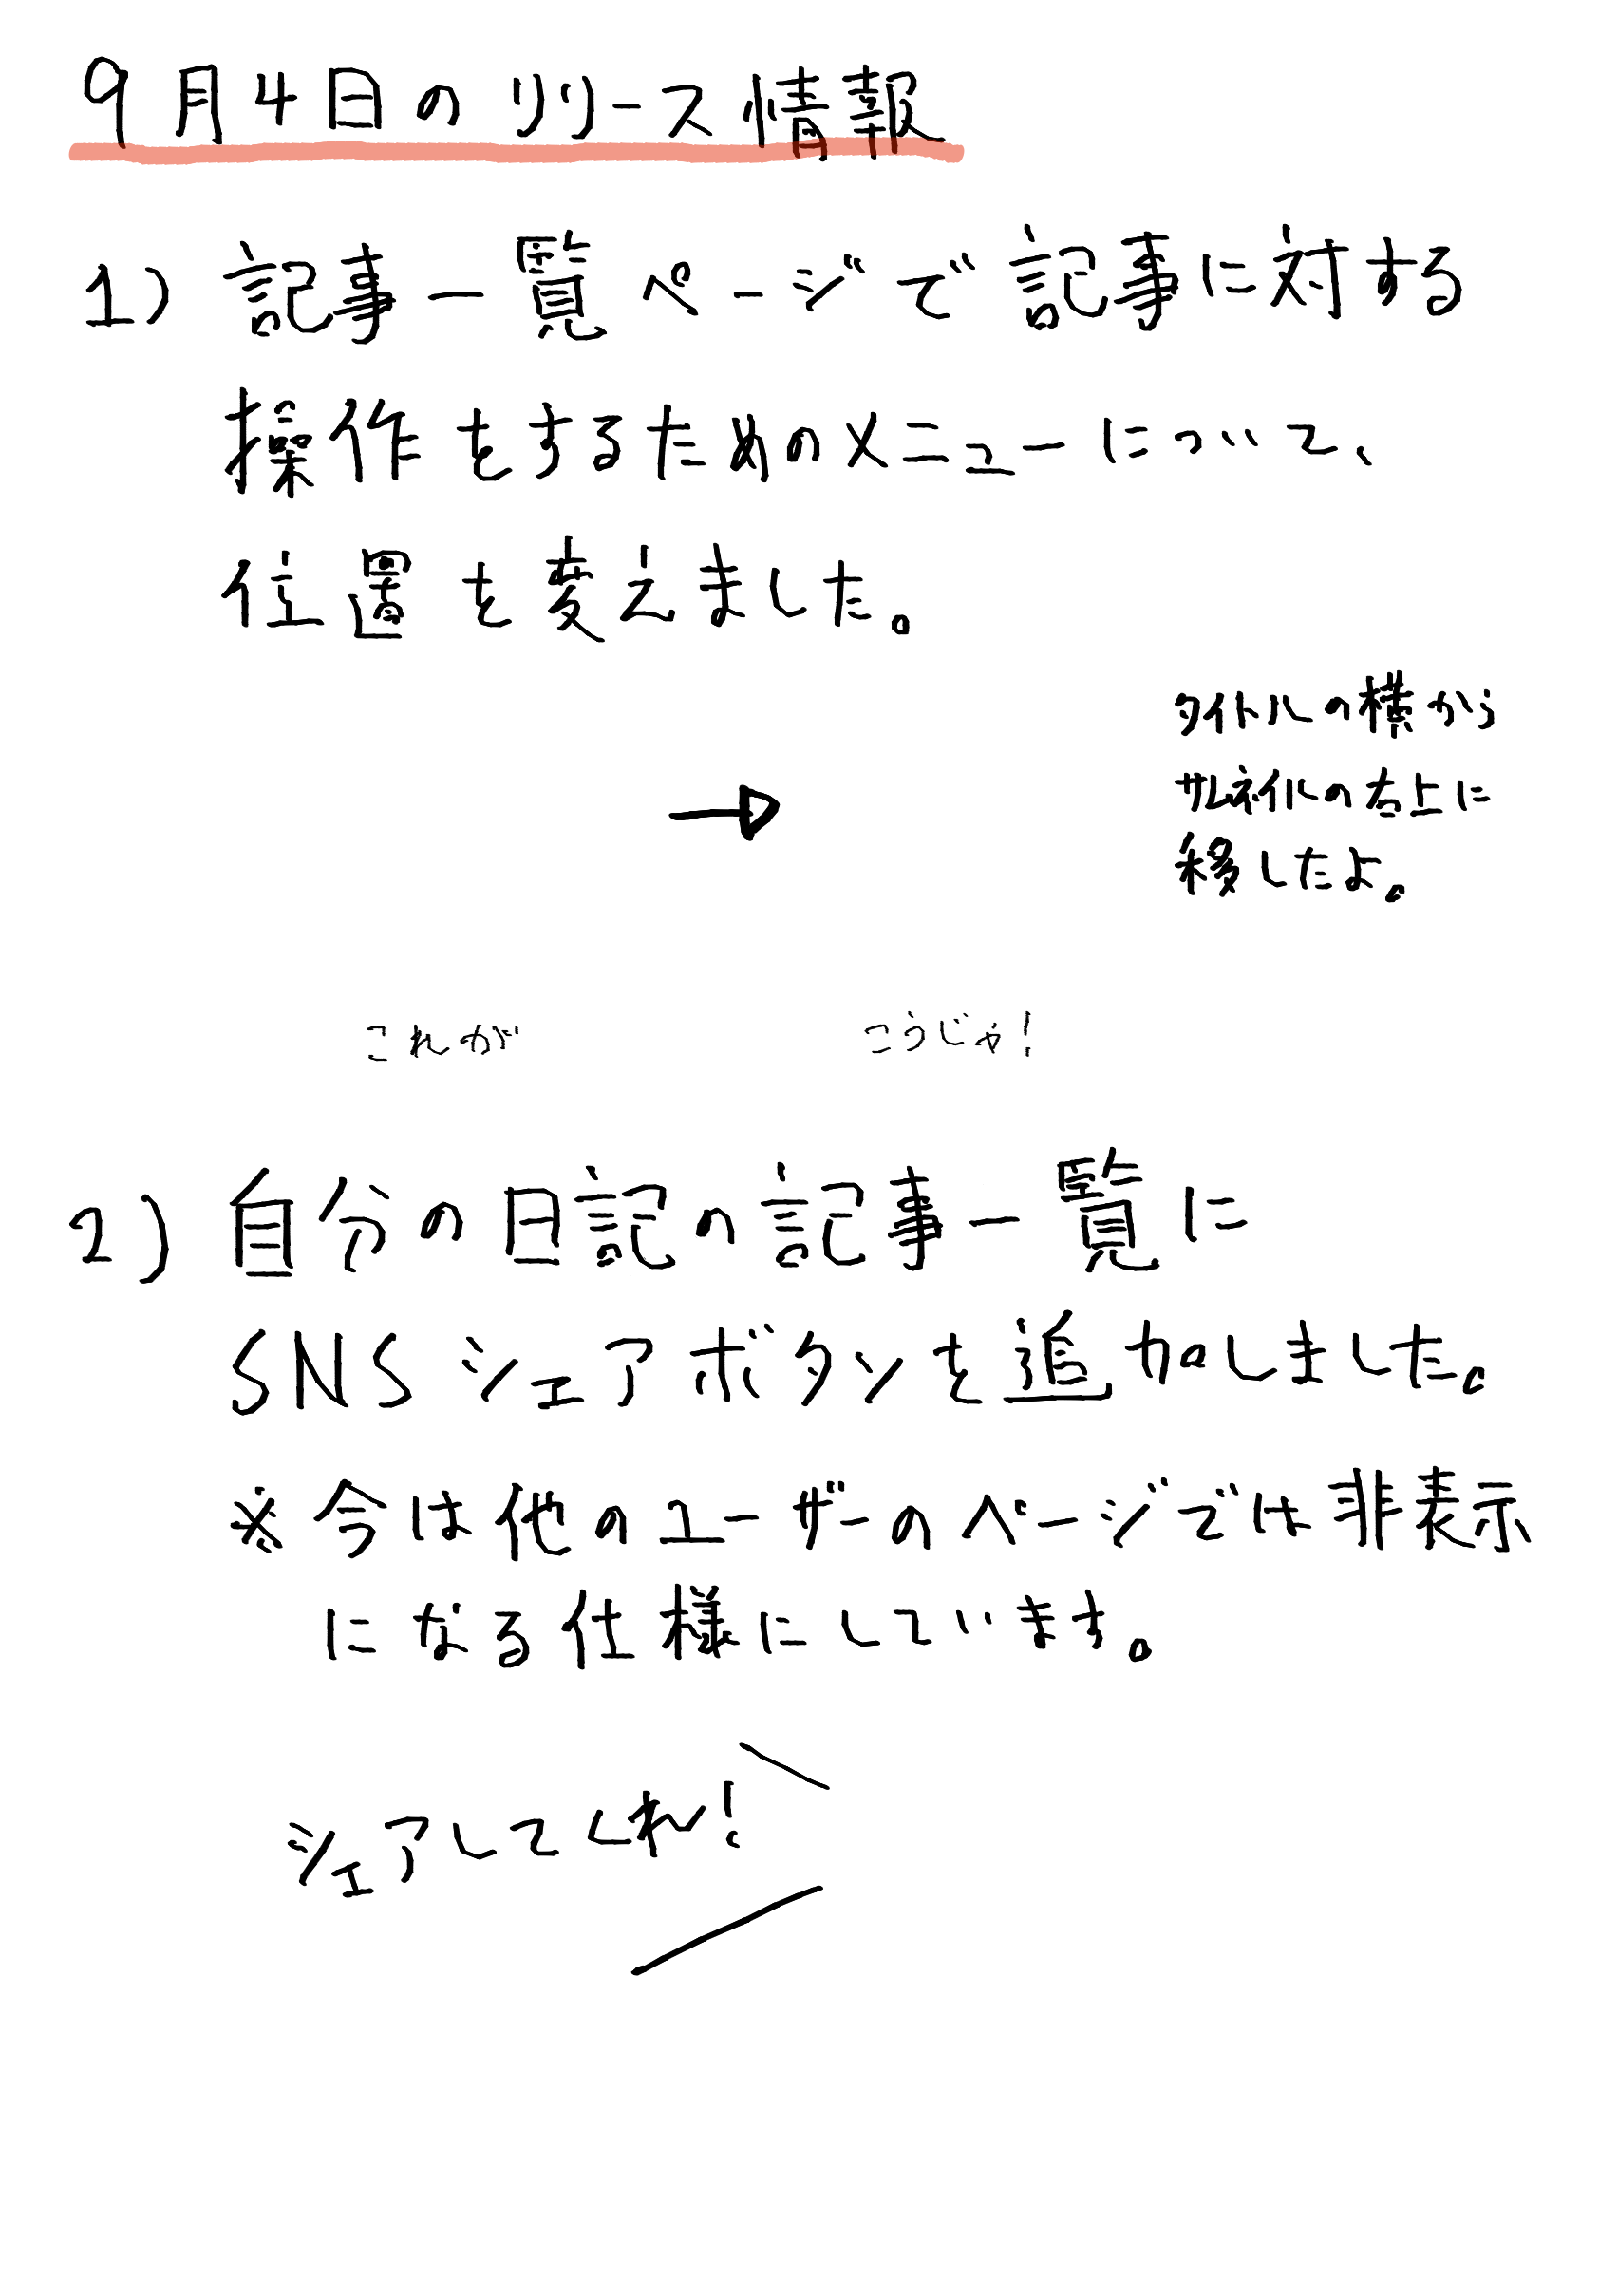 9月4日のリリース情報
1) 記事一覧ページで記事に対する
操作をするためのメニューについて、
位置を変えました。
タイトルの横から
サムネイルの右上に
移したよ。
→
これが
こうじゃ!
2) 自分の日記の記事一覧に
SNSシェアボタンを追加しました。
※今は他のユーザーのページでは非表示
になる仕様にしています。
シェアしてくれ!